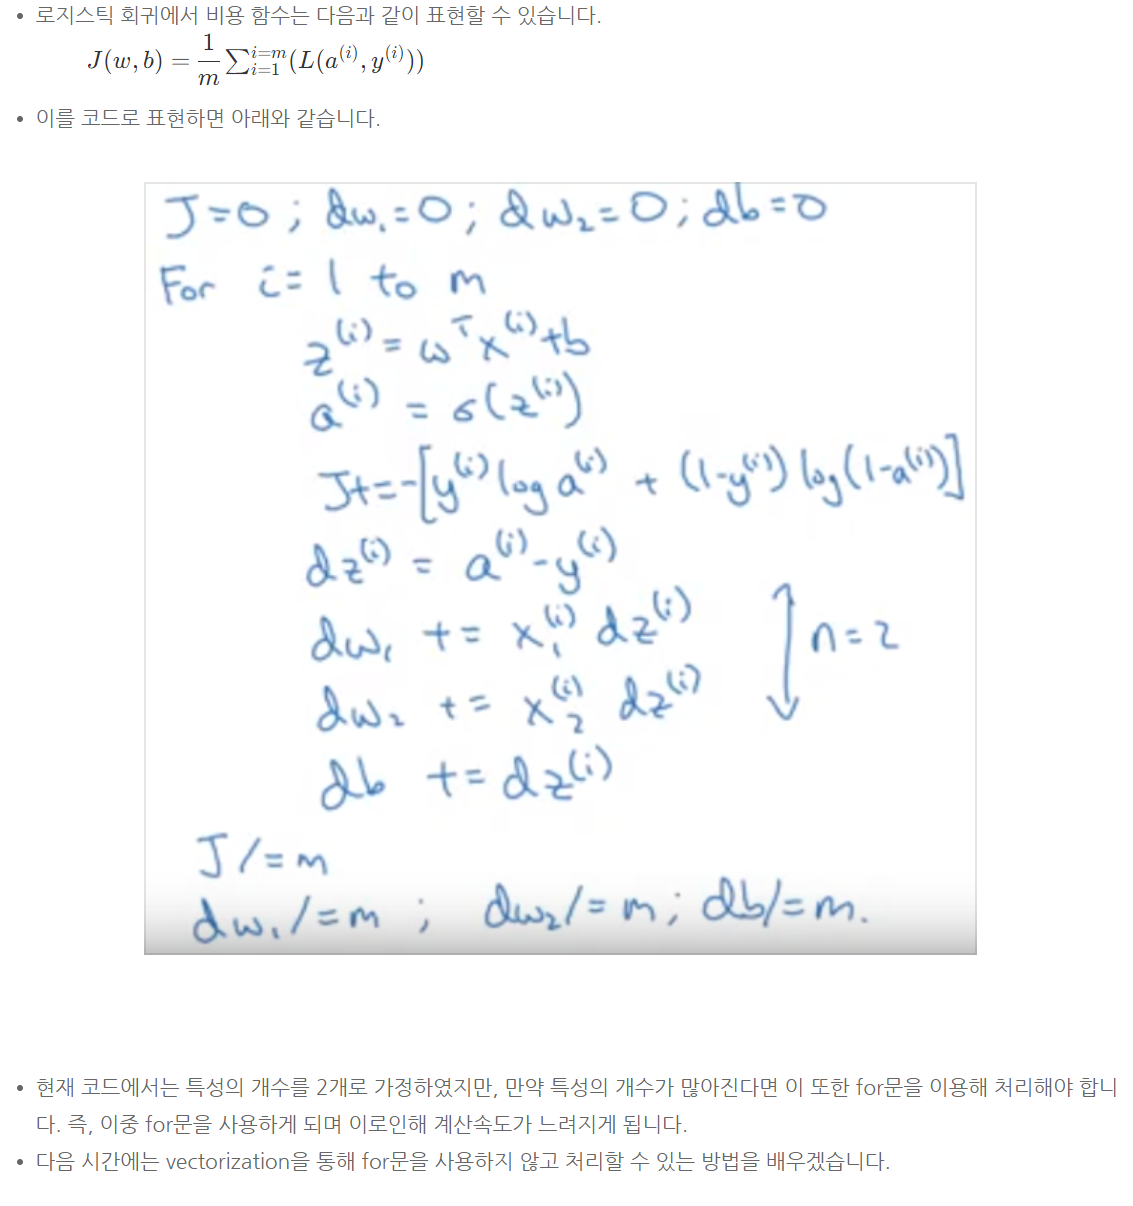 • 로지스틱 회귀에서 비용 함수는 다음과 같이 표현할 수 있습니다.
J(w, b) = 1/m ∑_{i=1}^{i=m}(L(a^{(i)}, y^{(i)}))
• 이를 코드로 표현하면 아래와 같습니다.
J=0 ; dw₁=0 ; dw₂=0 ; db=0
For i=1 to m
z^{(i)} = ω^T x^{(i)}+b
a^{(i)} = σ(z^{(i)})
J+=-[y^{(i)} log a^{(i)} + (1-y^{(i)}) log(1-a^{(i)})]
dz^{(i)} = a^{(i)}-y^{(i)}
dw₁ += x₁^{(i)} dz^{(i)}
n=2
dw₂ += x₂^{(i)} dz^{(i)}
db += dz^{(i)}
J/=m
dw₁/=m ; dw₂/=m ; db/=m.
• 현재 코드에서는 특성의 개수를 2개로 가정하였지만, 만약 특성의 개수가 많아진다면 이 또한 for문을 이용해 처리해야 합니
다. 즉, 이중 for문을 사용하게 되며 이로인해 계산속도가 느려지게 됩니다.
• 다음 시간에는 vectorization을 통해 for문을 사용하지 않고 처리할 수 있는 방법을 배우겠습니다.